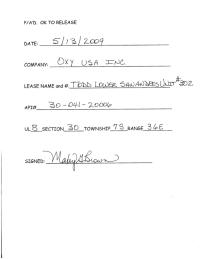 P/A'D. OK TO RELEASE
DATE: 5/13/2009
COMPANY: OXY USA INC
LEASE NAME and #: TODD LOWER SAN ANDRES UNIT #302
API# 30-041-20006
UL B SECTION 30 TOWNSHIP 7S RANGE 36E
SIGNED: Maley G Brown